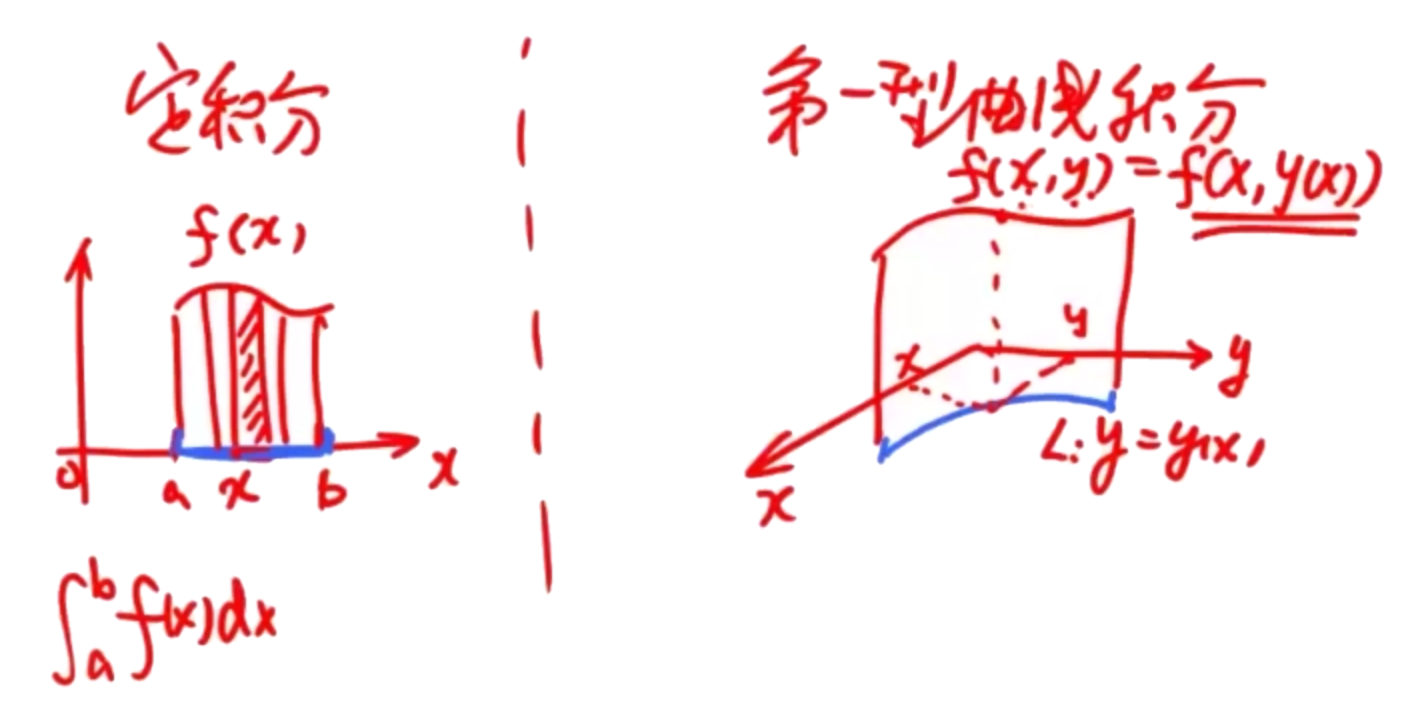 定积分
f(x)
o
a
x
b
x
∫_a^b f(x)dx
第一型曲线积分
f(x,y)=f(x,y(x))
y
x
y
x
L:y=y(x)